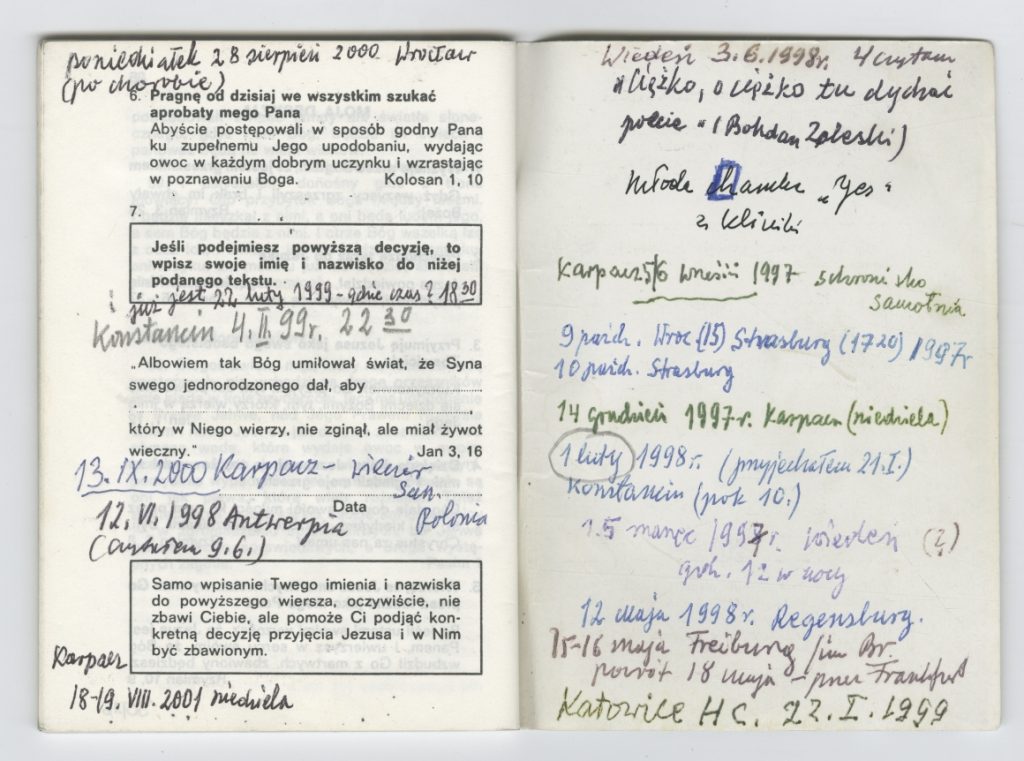 poniedziałek 28 sierpień 2000 Wrocław
(po chorobie)
6. Pragnę od dzisiaj we wszystkim szukać
aprobaty mego Pana
Abyście postępowali w sposób godny Pana
ku zupełnemu Jego upodobaniu, wydając
owoc w każdym dobrym uczynku i wzrastając
w poznawaniu Boga. Kolosan 1, 10
7.
Jeśli podejmiesz powyższą decyzję, to
wpisz swoje imię i nazwisko do niżej
podanego tekstu.
już jest 22 luty 1999 - gdzie czas? 18 30
Konstancin 4.II.99r. 22 30
„Albowiem tak Bóg umiłował świat, że Syna
swego jednorodzonego dał, aby
który w Niego wierzy, nie zginął, ale miał żywot
wieczny." Jan 3, 16
13.IX.2000 Karpacz - wieczór
San.
Data
Polonia
12.VI.1998 Antwerpia
(czytałem 9.6.)
Samo wpisanie Twego imienia i nazwiska
do powyższego wiersza, oczywiście, nie
zbawi Ciebie, ale pomoże Ci podjąć kon-
kretną decyzję przyjęcia Jezusa i w Nim
być zbawionym.
Karpacz
18-19. VIII. 2001 niedziela
Wiedeń 3.6.1998r. czytam
"Ciężko, o ciężko tu dychać
poecie" (Bohdan Zaleski)
Młoda "Yes"
z kliniki
Karpacz 5/6 wrześń 1997 schronisko
Samotnia
9 paźdz. Wroc (15) Strasburg (17 20) 1997r
10 paźdz. Strasburg
14 grudzień 1997r. Karpacz (niedziela)
1 luty 1998r. (przyjechałem 21.I.)
Konstancin (pok 10.)
15 marzec 1997 Wiedeń (?)
godz. 12 w nocy
12 maja 1998r. Regensburg.
15-16 maja Freiburg /im Br.
powrót 18 maja - przez Frankfurt
Katowice HC. 22.I.1999